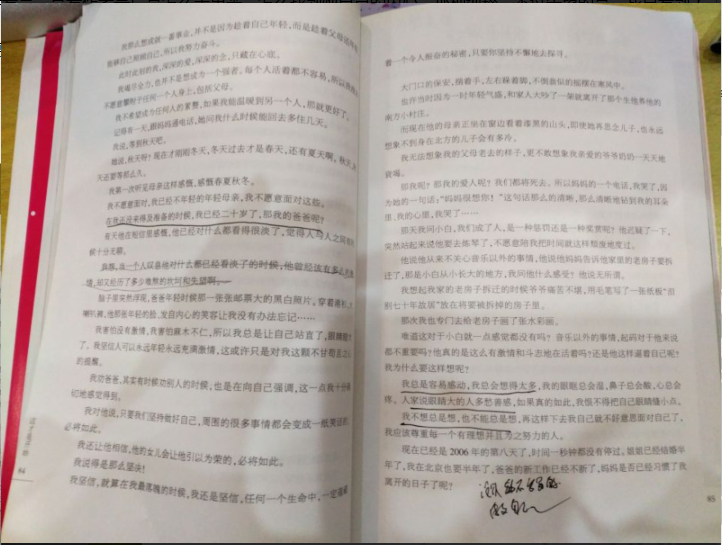 我那么想成就一番事业，并不是因为趁着自己年轻，而是趁着父母还年轻
能够自己照顾自己，所以我努力奋斗。
此时此刻的我，深深的爱，深深的念，只藏在心底。
我竭尽全力，也并不是想成为一个强者，每个人活着都不容易，所以我
不愿意寄附于任何一个人身上，包括父母。
我不希望成为任何人的累赘，如果我能温暖到另一个人，那就更好了。
记得有一天，跟妈妈通电话，她问我什么时候能回去多住几天。
我说，等到秋天吧。
她说，秋天呀？现在才刚刚冬天，冬天过去才是春天，还有夏天啊，秋天
天还要等那么久。
我第一次听见母亲这样感慨，感慨春夏秋冬。
我不愿意面对，我已经不年轻的年轻母亲，我不愿意面对这些。
在我还没来得及准备的时候，我已经二十岁了，那我的爸爸呢？
有天他在短信里感慨，他已经对什么都看得很淡了，觉得人与人之间
候十分无聊。
我想，当一个人以易他对什么都已经看淡了的时候，他曾经该有多么
情，却又经历了多少难熬的坎坷和失望啊。
脑子里突然浮现，爸爸年轻时候那一张张邮票大的黑白照片，穿着
喇叭裤，他那张年轻的脸、发自内心的笑容让我没有办法忘记……
我害怕没有激情，我害怕麻木不仁，所以我总是让自己站直了，眼睛
了。我坚信人可以永远年轻永远充满激情，这或许只是对我这颗不甘苟且之心
的提醒。
我劝爸爸，其实有时候劝别人的时候，也是在向自己强调，这一点我十分
切地感觉得到。
我对他说，只要我们坚持做好自己，周围的很多事情都会变成一纸笑谈的，
必将如此。
我还让他相信，他的女儿会让他引以为荣的，必将如此。
我说得是那么坚决！
我坚信，就算在我最落魄的时候，我还是坚信，任何一个生命中，一定
64
着一个令人振奋的秘密，只要你坚持不懈地去探寻。
大门口的保安，揣着手，左右跺着脚，不倒翁似的摇摆在寒风中。
也许当时因为一时年轻气盛，和家人大吵了一架就离开了那个生他养他的
南方小村庄。
而现在他的母亲正坐在窗边看着漆黑的山头，即使她再思念儿子，也永远
想象不到身在北方的儿子会有多冷。
我无法想象我的父母老去的样子，更不敢想象我亲爱的爷爷奶奶一天天地
衰竭。
那我呢？那我的爱人呢？我们都将死去。所以妈妈的一个电话，我哭了，因
为她的一句话：“妈妈很想你！”这句话那么的清晰，那么清晰地钻到我的耳朵
里，我的心里，我哭了……
那天我问小白，我们成了人，是一种惩罚还是一种奖赏呢？他迟疑了一下，
突然站起来说他要去练琴了，不愿意陪我把时间就这样颓废地度过。
他说他从来不关心音乐以外的事情，他说他妈妈告诉他家里的老房子要拆
迁了，那是小白从小长大的地方，我问他什么感受？他说无所谓。
我想起我家的老房子拆迁的时候爷爷痛苦不堪，用毛笔写了一张纸板“泪
别七十年故居”放在将要被拆掉的房子里。
那次我也专门去给老房子画了张水彩画。
难道这对于小白就一点感觉都没有吗？音乐以外的事情，起码对于他来说
都不重要吗？他真的是这么有激情和斗志地在活着吗？还是他这样逼着自己呢？
我为什么要这样想呢？
我总是容易感动，我总会想得太多，我的眼眶总会湿，鼻子总会酸，心总会
疼。人家说眼睛大的人多愁善感，如果真的如此，我恨不得把自己眼睛缝小点。
我不想总是想，也不能总是想，再这样下去我自己就不好意思面对自己了，
我应该尊重每一个有理想并且为之努力的人。
现在已经是 2006 年的第八天了，时间一秒钟都没有停过，姐姐已经结婚半
年了，我在北京也要半年了，爸爸的新工作已经不断了，妈妈是否已经习惯了我
离开的日子了呢？
65